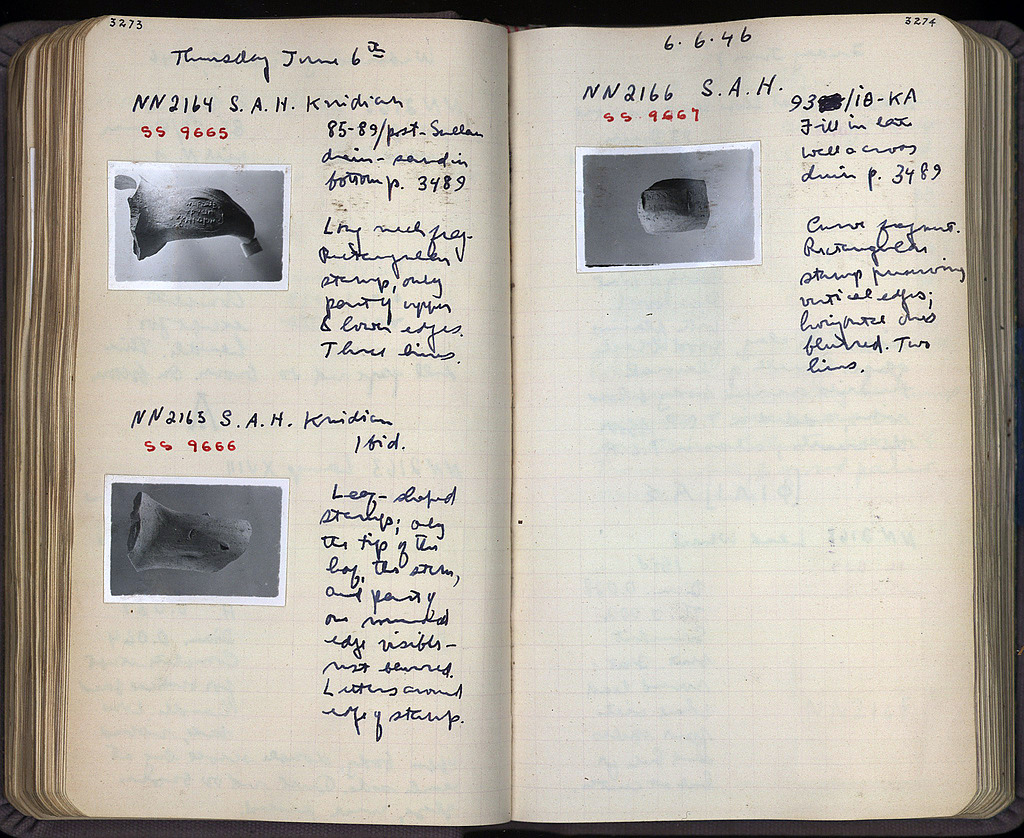 3273
Thursday June 6th
NN2164 S.A.H. Knidian
SS 9665
85-89/post-Sullan
drain - sand in
bottom p. 3489
Long neck frag.
Rectangular
stamp; only
part of upper
& lower edges.
Three lines.
NN2163 S.A.H. Knidian
SS 9666
Ibid.
Leaf-shaped
stamp; only
the tip of the
leaf, the stem,
and part of
one rounded
edge visible -
rest blurred.
Letters around
edge of stamp.
3274
6.6.46
NN2166 S.A.H.
SS 9667
93/ΙΘ-ΚΑ
Fill in late
well across
drain p. 3489
Curve fragment.
Rectangular
stamp preserving
vertical edges;
horizontal ones
blurred. Two
lines.